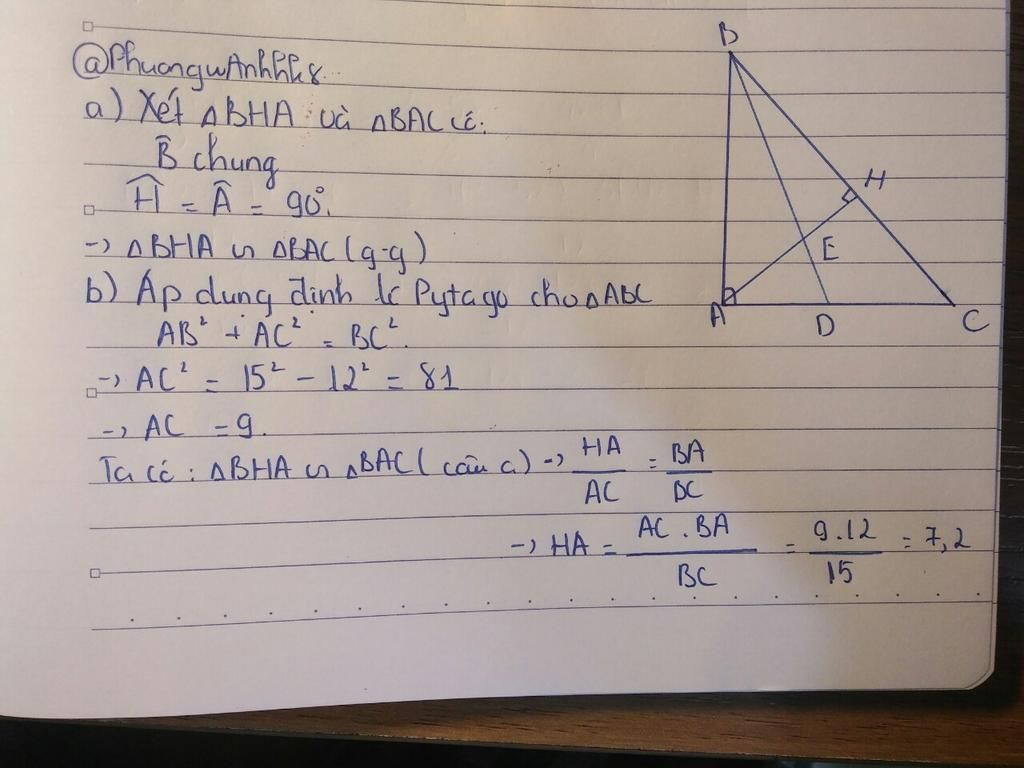 @PhuongwAnhhh8..
a) Xét △BHA và △BAC có:
B̂ chung
Ĥ = Â = 90°.
→ △BHA ∽ △BAC (g-g)
b) Áp dụng định lí Pytago cho △ABC
AB² + AC² = BC².
→ AC² = 15² - 12² = 81
→ AC = 9.
Ta có: △BHA ∽ △BAC (câu a) → HA/AC = BA/BC
→ HA = AC . BA/BC = 9.12/15 = 7,2
B
H
E
A
D
C